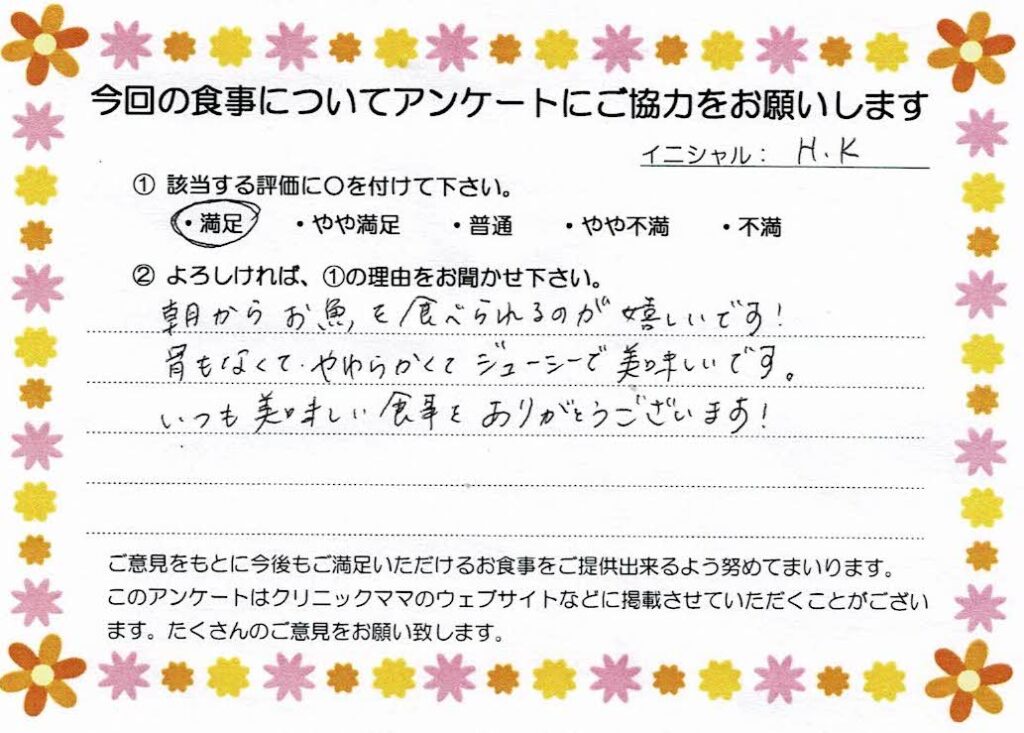 今回の食事についてアンケートにご協力をお願いします
イニシャル： H.K
① 該当する評価に〇を付けて下さい。
・満足 ・やや満足 ・普通 ・やや不満 ・不満
② よろしければ、①の理由をお聞かせ下さい。
朝からお魚を食べられるのが嬉しいです！
骨もなくて、やわらかくてジューシーで美味しいです。
いつも美味しい食事をありがとうございます！
ご意見をもとに今後もご満足いただけるお食事をご提供出来るよう努めてまいります。
このアンケートはクリニックママのウェブサイトなどに掲載させていただくことがござい
ます。たくさんのご意見をお願い致します。